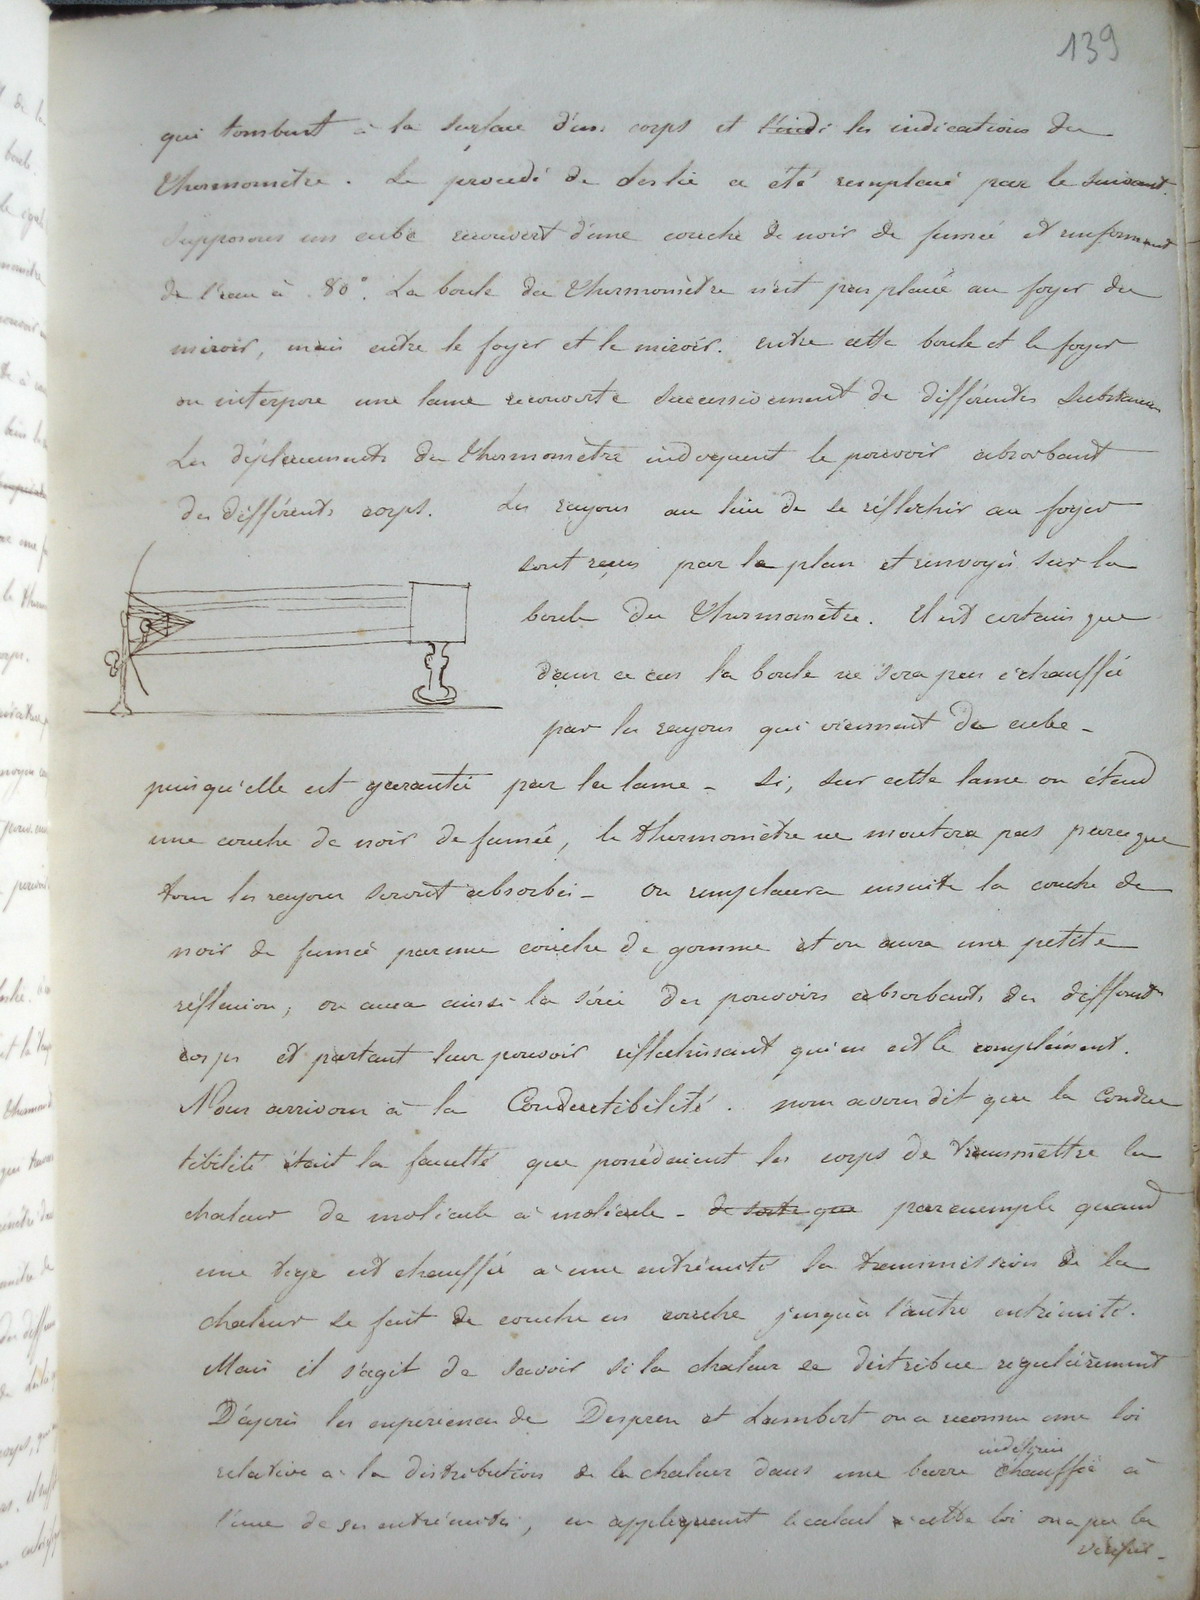 139
qui tombent à la surface d'un corps et les indications du
thermomètre. Le procédé de Leslie a été remplacé par le suivant.
Supposons un cube recouvert d'une couche de noir de fumée et renfermant
de l'eau à 80°. La boule du thermomètre n'est pas placée au foyer du
miroir, mais entre le foyer et le miroir. entre cette boule et le foyer
on interpose une lame recouverte successivement de différentes substances
Les déplacements du thermomètre indiquent le pouvoir absorbant
des différents corps. Les rayons au lieu de se réflechir au foyer
sont reçus par le plan et renvoyés sur la
boule du thermomètre. Il est certain que
dans ce cas la boule ne sera pas échauffée
par les rayons qui viennent du cube -
puisqu'elle est garantie par la lame - Si, sur cette lame on étend
une couche de noir de fumée, le thermomètre ne montera pas parce que
tous les rayons seront absorbés - on remplacera ensuite la couche de
noir de fumée par une couche de gomme et on aura une petite
réflexion, on aura ainsi la série des pouvoirs absorbants des différents
corps et partant leur pouvoir réflechissant qui en est le complément.
Nous arrivons à la Conductibilité. nous avons dit que la conduc
tibilité était la faculté que possédaient les corps de transmettre la
chaleur de molécule à molécule - de sorte que par exemple quand
une tige est chauffée à une extrémité la transmission de la
chaleur se fait de couche en couche jusqu'à l'autre extrémité.
Mais il s'agit de savoir si la chaleur se distribue regulièrement
D'après les expériences de Despren et Lambert on a reconnu une loi
indéfinie
relative à la distribution de la chaleur dans une barre chauffée à
l'une de ses extrémités, en appliquant le calcul à cette loi on a pu la
vérifier -